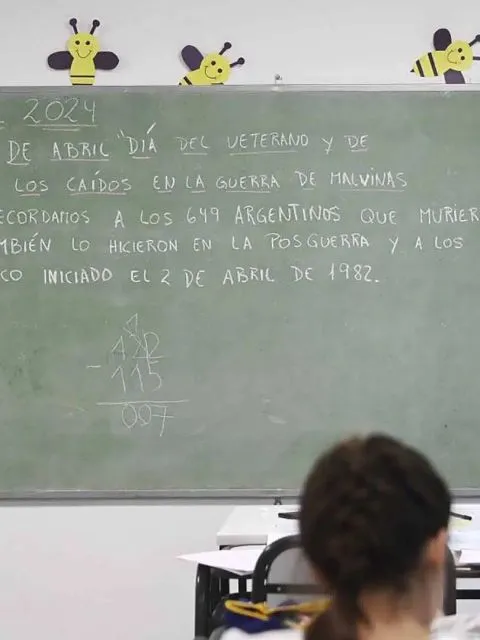 2024
DE ABRIL "DIÁ DEL VETERANO Y DE
LOS CAÍDOS EN LA GUERRA DE MALVINAS
ECORDAMOS A LOS 649 ARGENTINOS QUE MURIER
MBIÉN LO HICIERON EN LA POSGUERRA Y A LOS
CO INICIADO EL 2 DE ABRIL DE 1982.
- 115
007